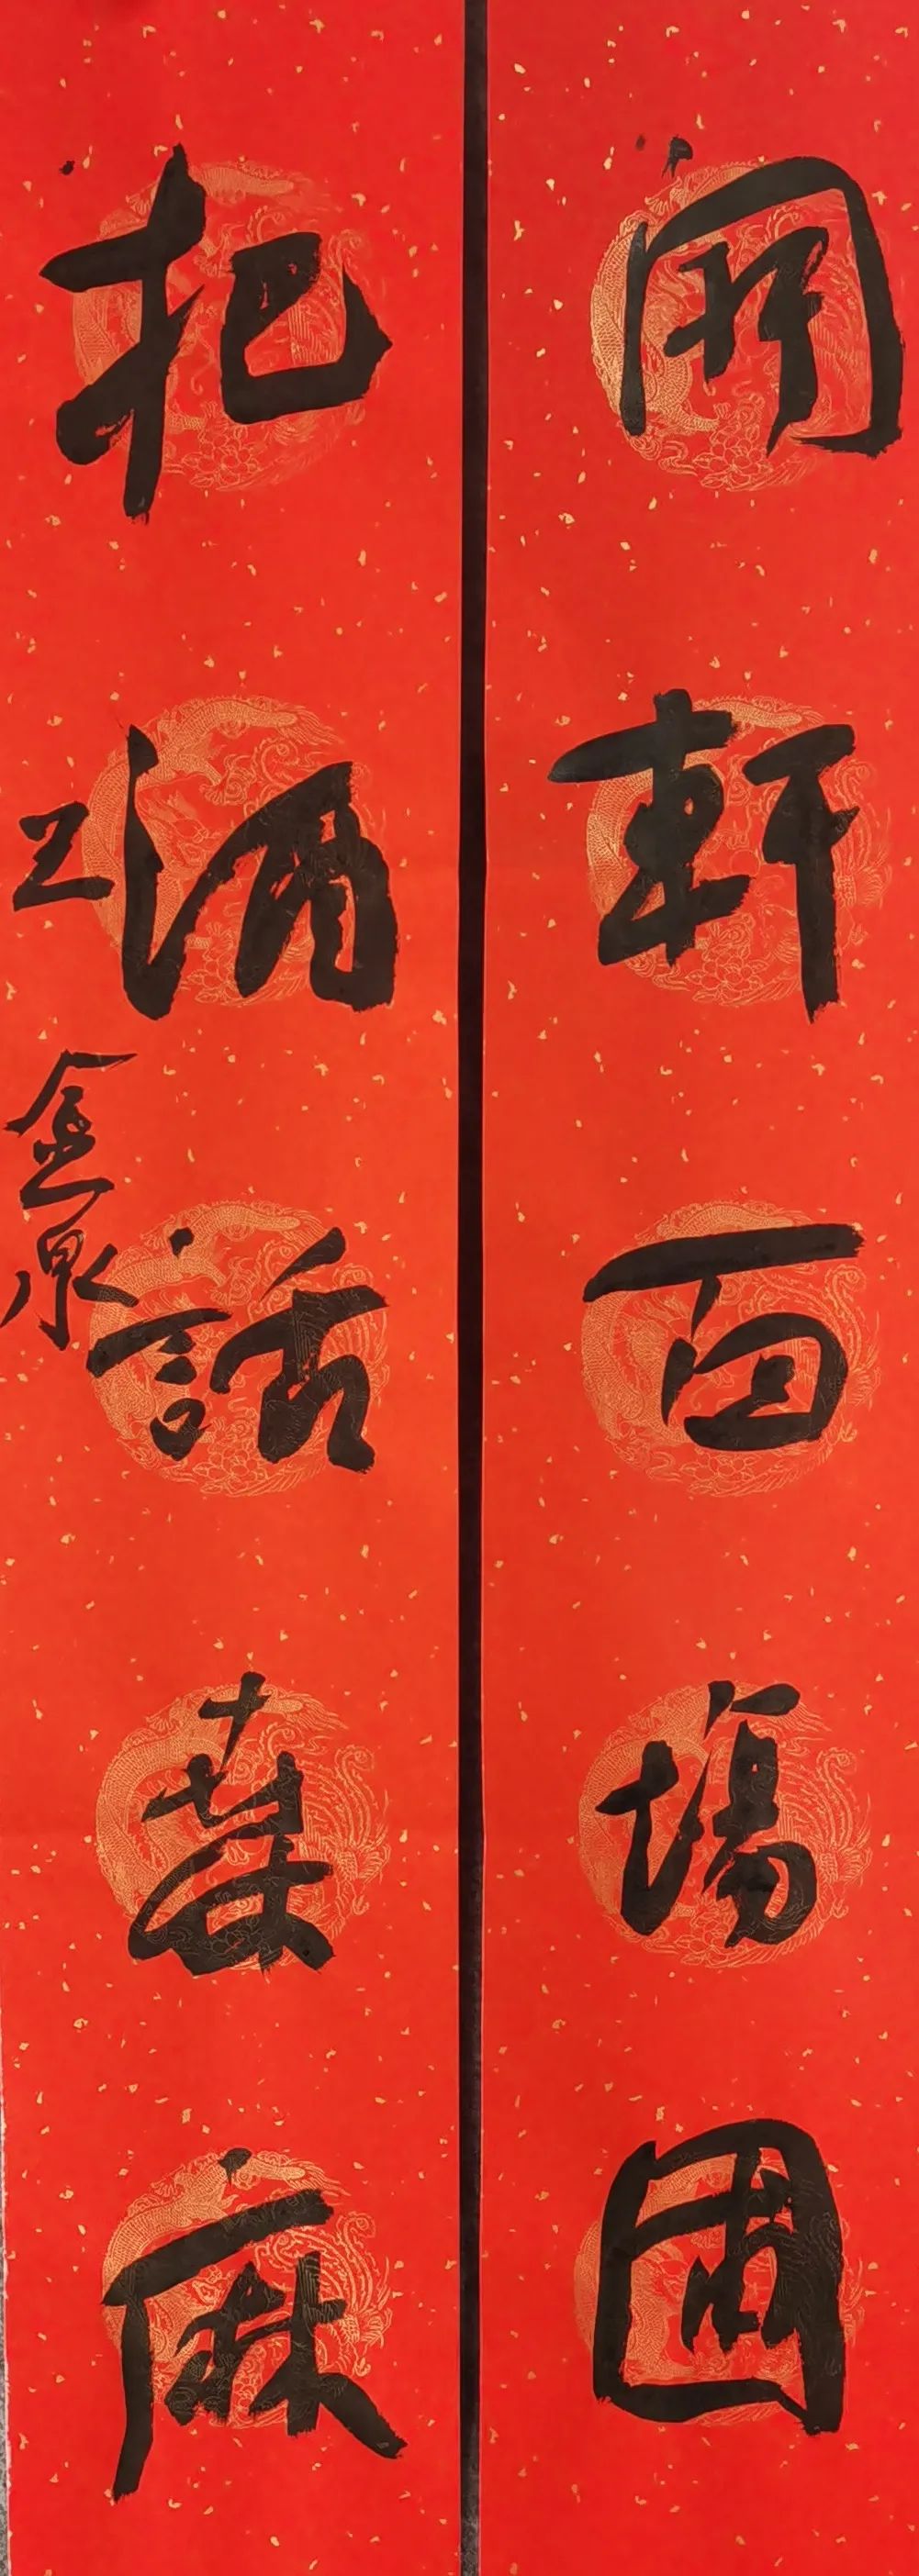 開軒面場圃
把酒話桑麻
金泉